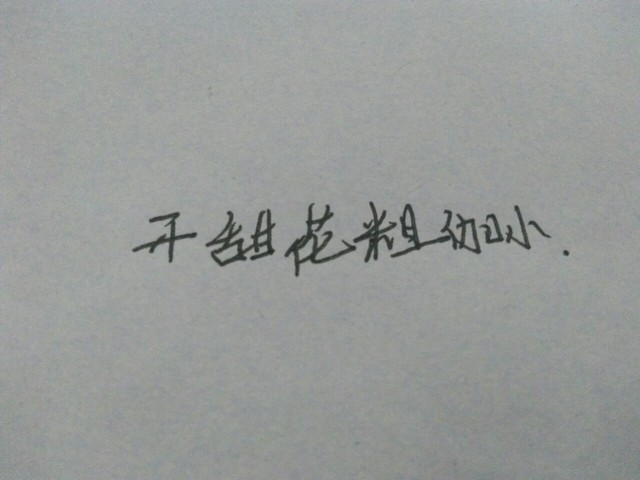 开甜花粗幼小.